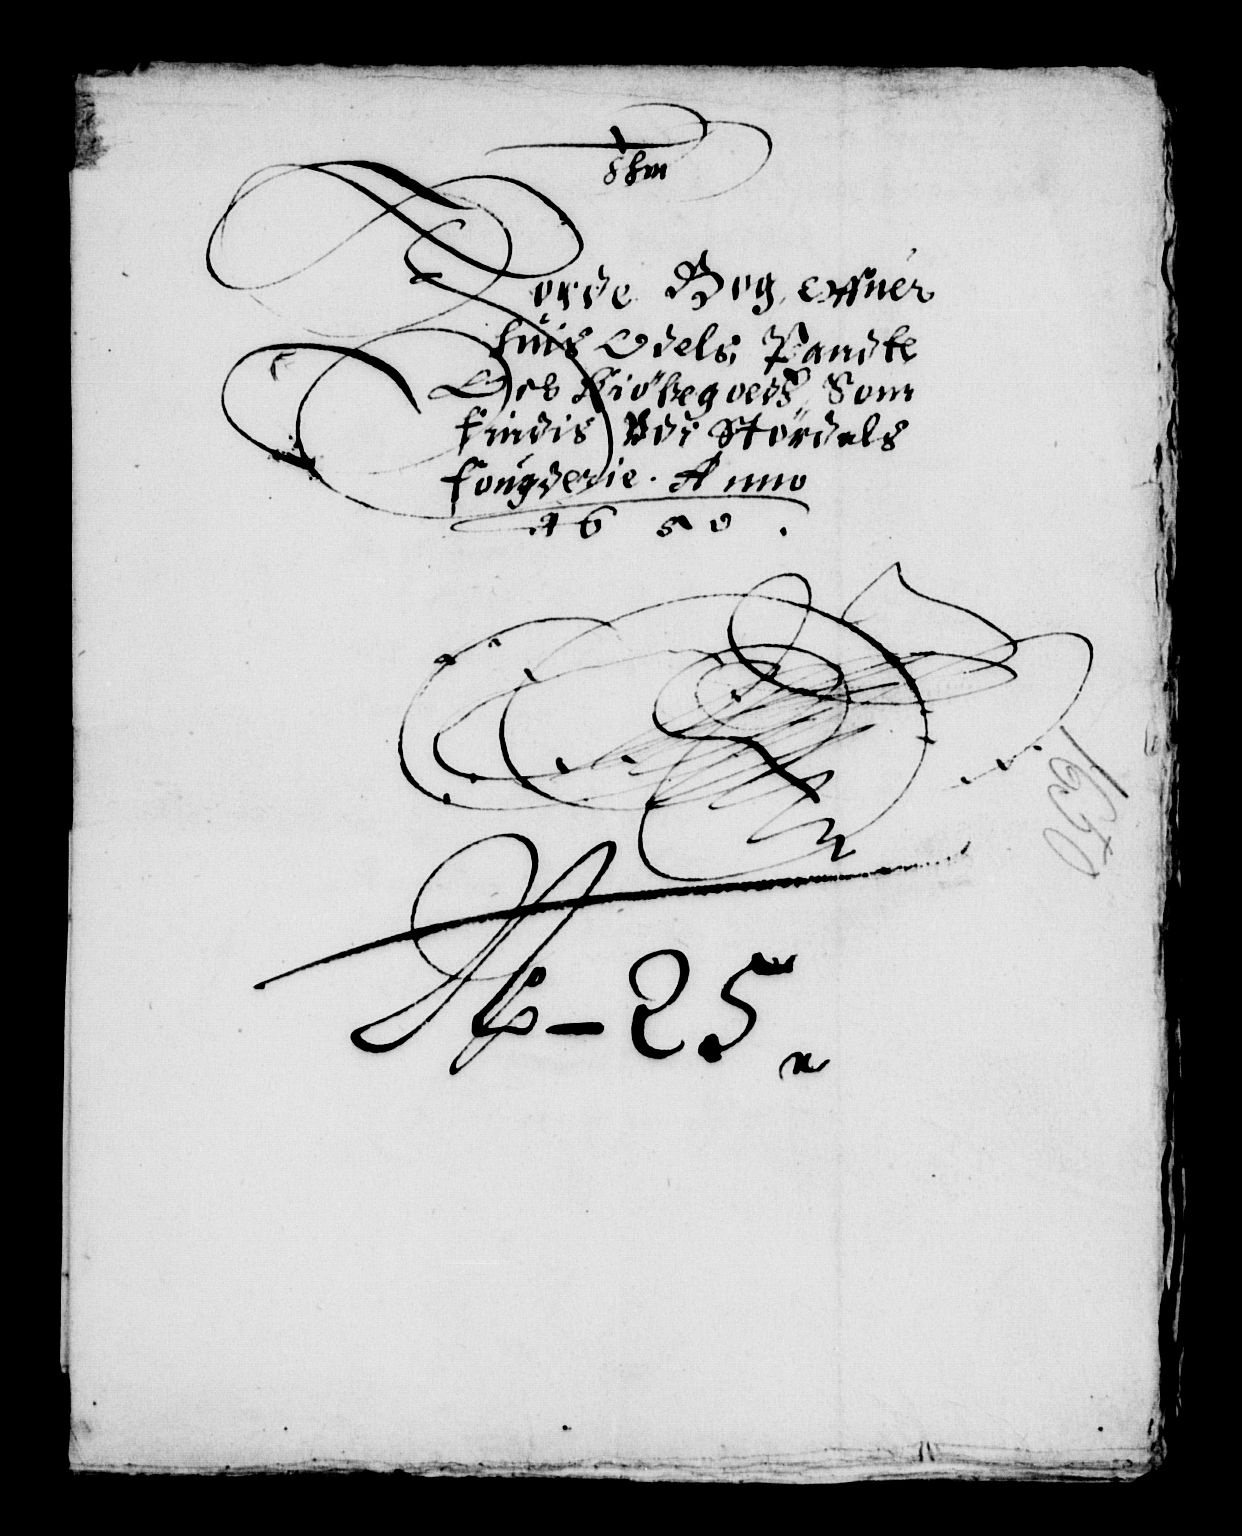 Jorde Bog Offuer
huis Odels Pandte
Och Kiöbegoeds Som
findis Vdi Stördals
fougderie. Anno
1650.
1650
No – 25